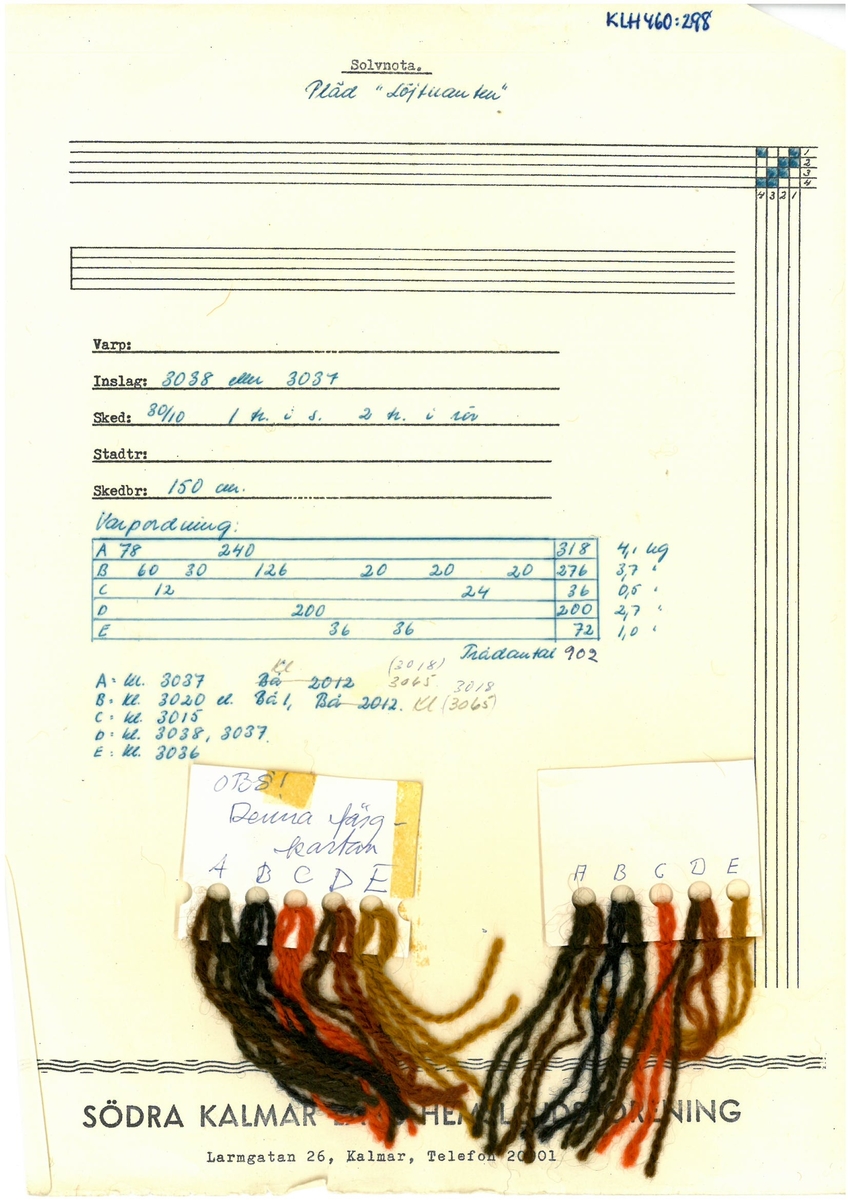 KLH460:298
Solvnota.
Pläd "Löjtnanten"
1
2
3
4
4 3 2 1
Varp:
Inslag: 3038 eller 3037
Sked: 30/10 1 tr. i s. 2 tr. i rör
Stadtr:
Skedbr: 150 cm.
Varpordning:
A 78 240 318 4,1 kg
B 60 30 126 20 20 20 276 3,7 "
C 12 24 36 0,5 "
D 200 200 2,7 "
E 36 36 72 1,0 "
Trådantal 902
Kl (3018)
A = kl. 3037 Bå 2012 3065 3018
B = kl. 3020 el. Bå 1, Bå 2012. Kl (3065)
C = kl. 3015
D = kl. 3038, 3037.
E = kl. 3036
OBS!
Denna färg-
kartan
A B C D E
A B C D E
SÖDRA KALMAR HEM
Larmgatan 26, Kalmar, Telefon 20101